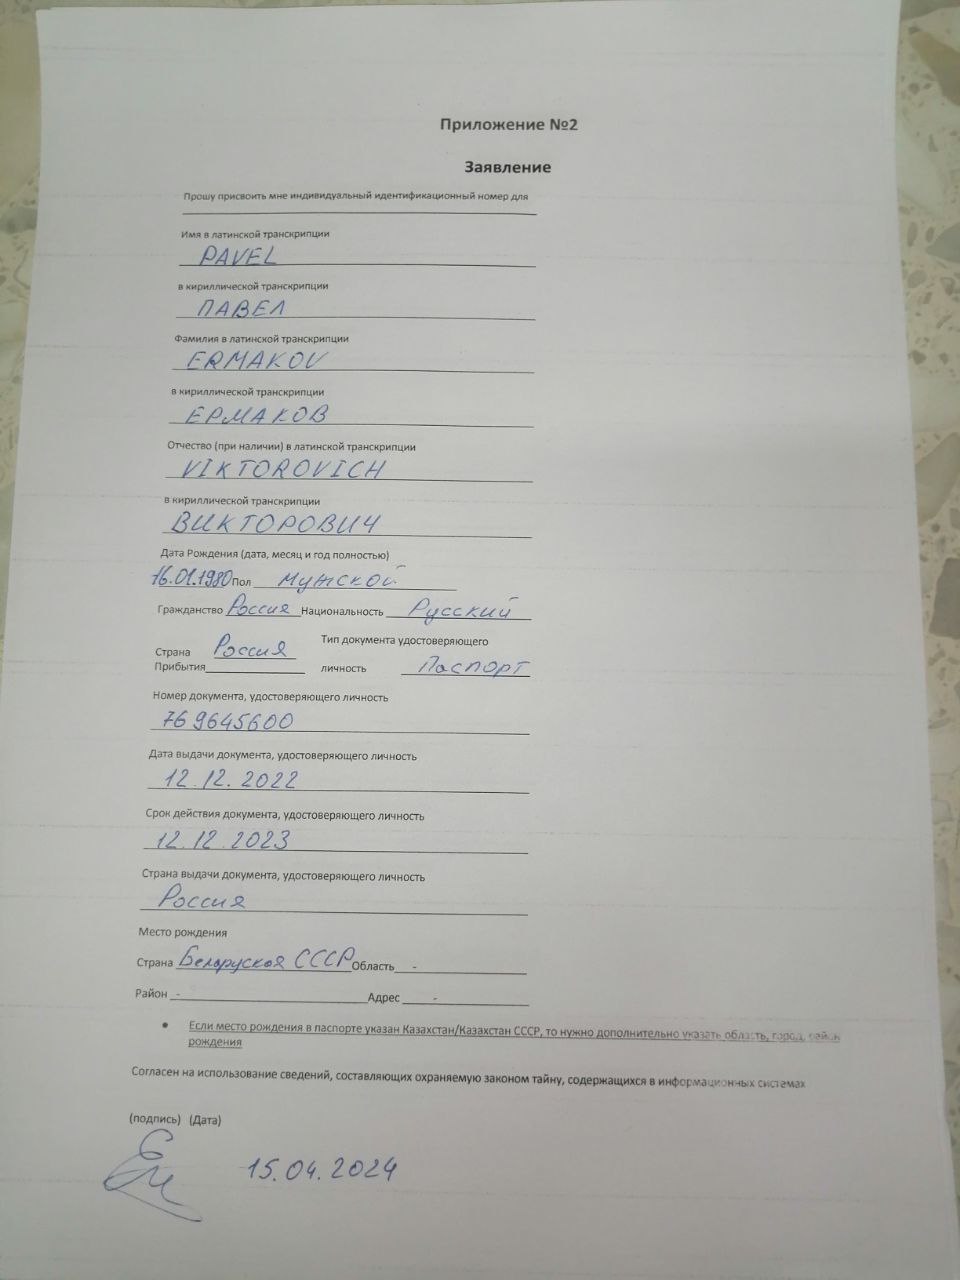 Приложение №2
Заявление
Прошу присвоить мне индивидуальный идентификационный номер для
Имя в латинской транскрипции
PAVEL
в кириллической транскрипции
ПАВЕЛ
Фамилия в латинской транскрипции
ERMAKOV
в кириллической транскрипции
ЕРМАКОВ
Отчество (при наличии) в латинской транскрипции
VIKTOROVICH
в кириллической транскрипции
ВИКТОРОВИЧ
Дата Рождения (дата, месяц и год полностью)
16.01.1980 Пол Мужской
Гражданство Россия Национальность Русский
Страна Прибытия Россия Тип документа удостоверяющего личность Паспорт
Номер документа, удостоверяющего личность
769645600
Дата выдачи документа, удостоверяющего личность
12.12.2022
Срок действия документа, удостоверяющего личность
12.12.2023
Страна выдачи документа, удостоверяющего личность
Россия
Место рождения
Страна Беларуская СССР Область -
Район - Адрес -
• Если место рождения в паспорте указан Казахстан/Казахстан СССР, то нужно дополнительно указать область, город, район
рождения
Согласен на использование сведений, составляющих охраняемую законом тайну, содержащихся в информационных системах
(подпись) (Дата)
15.04.2024